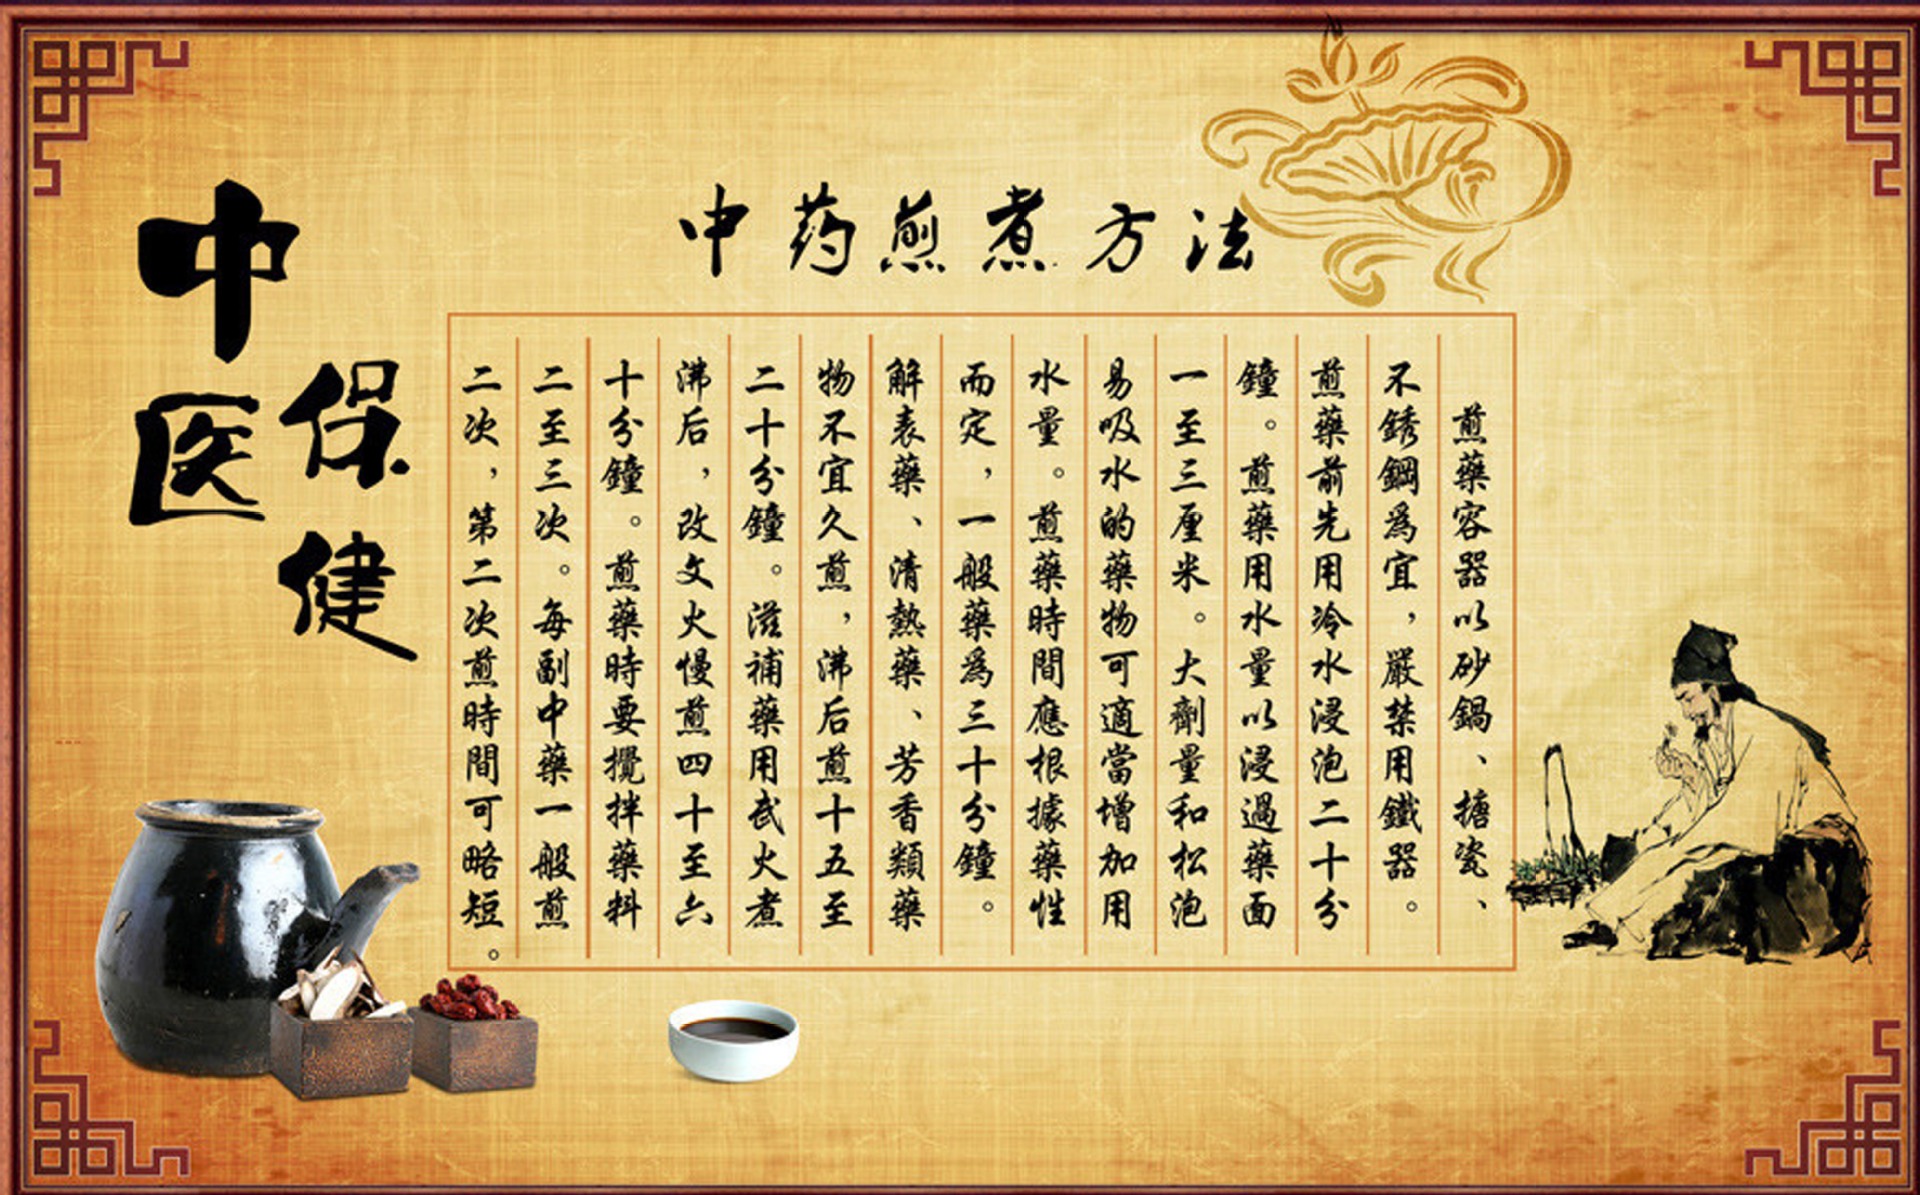 中医
保健
中药煎煮方法
煎藥容器以砂鍋、搪瓷、
不銹鋼爲宜，嚴禁用鐵器。
煎藥前先用冷水浸泡二十分
鐘。煎藥用水量以浸過藥面
一至三厘米。大劑量和松泡
易吸水的藥物可適當增加用
水量。煎藥時間應根據藥性
而定，一般藥爲三十分鐘。
解表藥、清熱藥、芳香類藥
物不宜久煎，沸后煎十五至
二十分鐘。滋補藥用武火煮
沸后，改文火慢煎四十至六
十分鐘。煎藥時要攪拌藥料
二至三次。每副中藥一般煎
二次，第二次煎時間可略短。